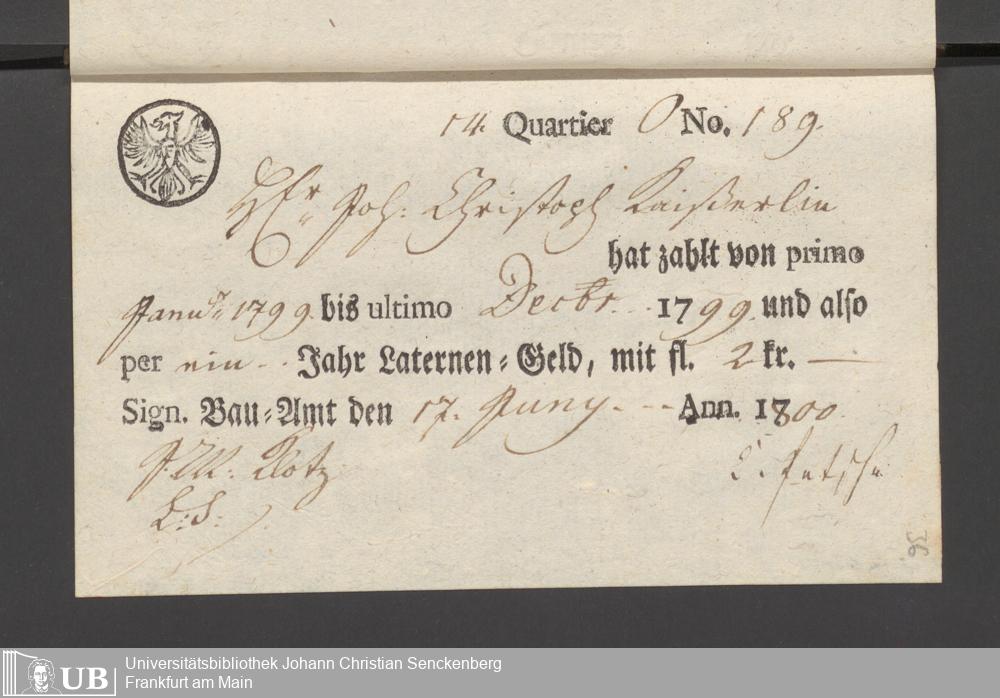 14. Quartier O No. 189.
HEr Joh: Christoph Kaißerlin
hat zahlt von primo
Janu 1799 bis ultimo Decbr. 1799 und also
per ein Jahr Laternen-Geld, mit fl. 2 kr. —
Sign. Bau-Amt den 17. Juny. Ann. 1800.
J. M. Klotz
L: S:
36
UB
Universitätsbibliothek Johann Christian Senckenberg
Frankfurt am Main